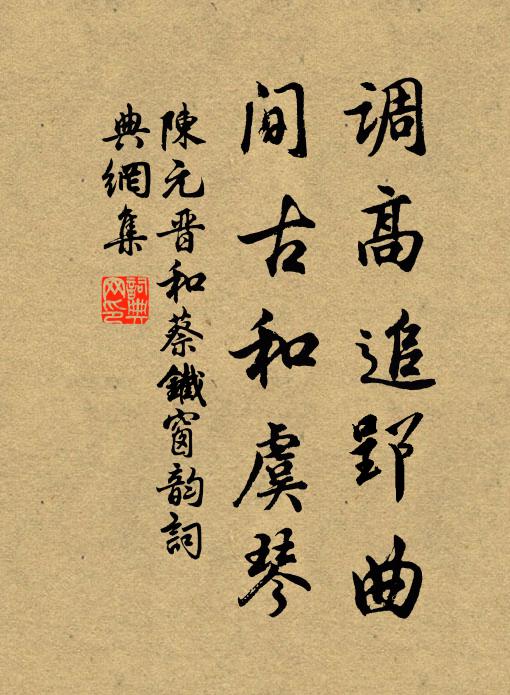 调高追郢曲
间古和虞琴
陳元晋和蔡鐵窗韵詞
典網集
詞典網印